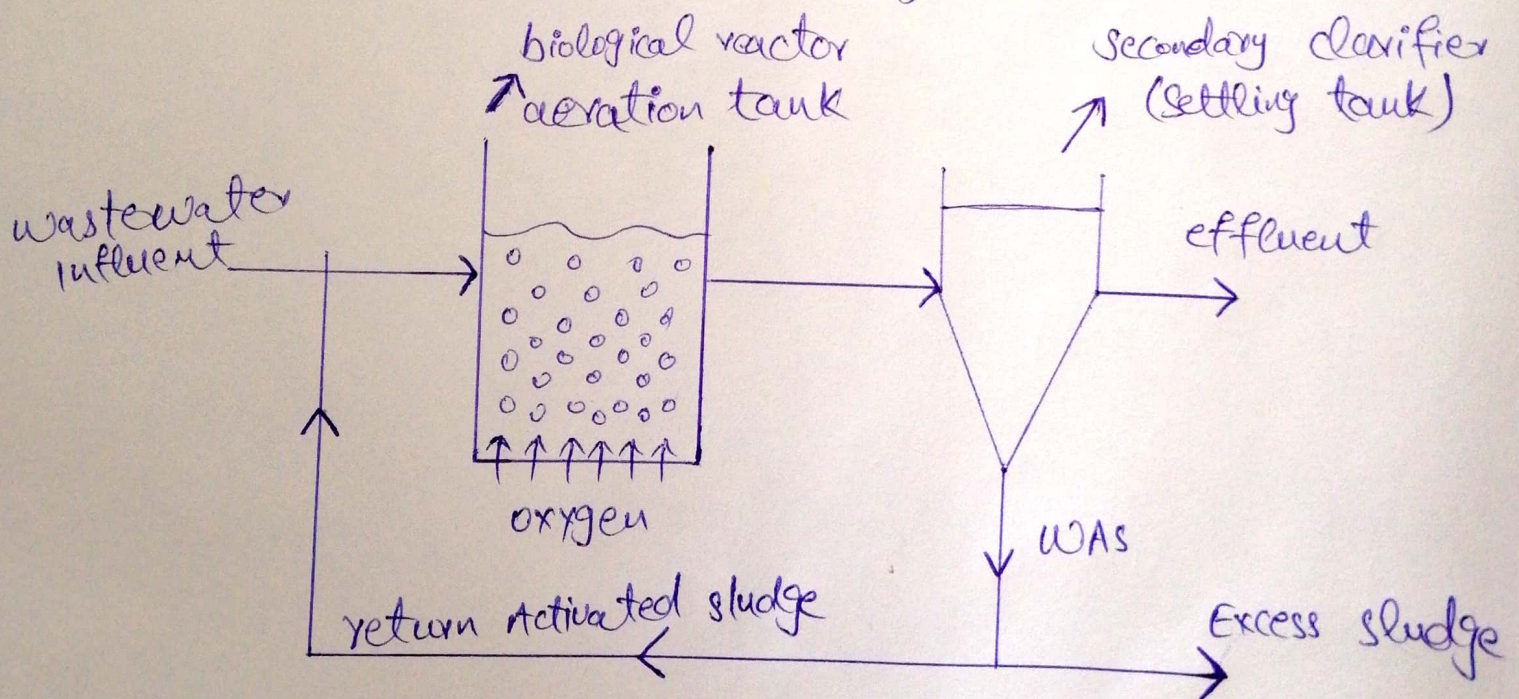 biological reactor
aeration tank
secondary clarifier
(settling tank)
wastewater
influent
effluent
oxygen
WAS
return Activated sludge
Excess sludge